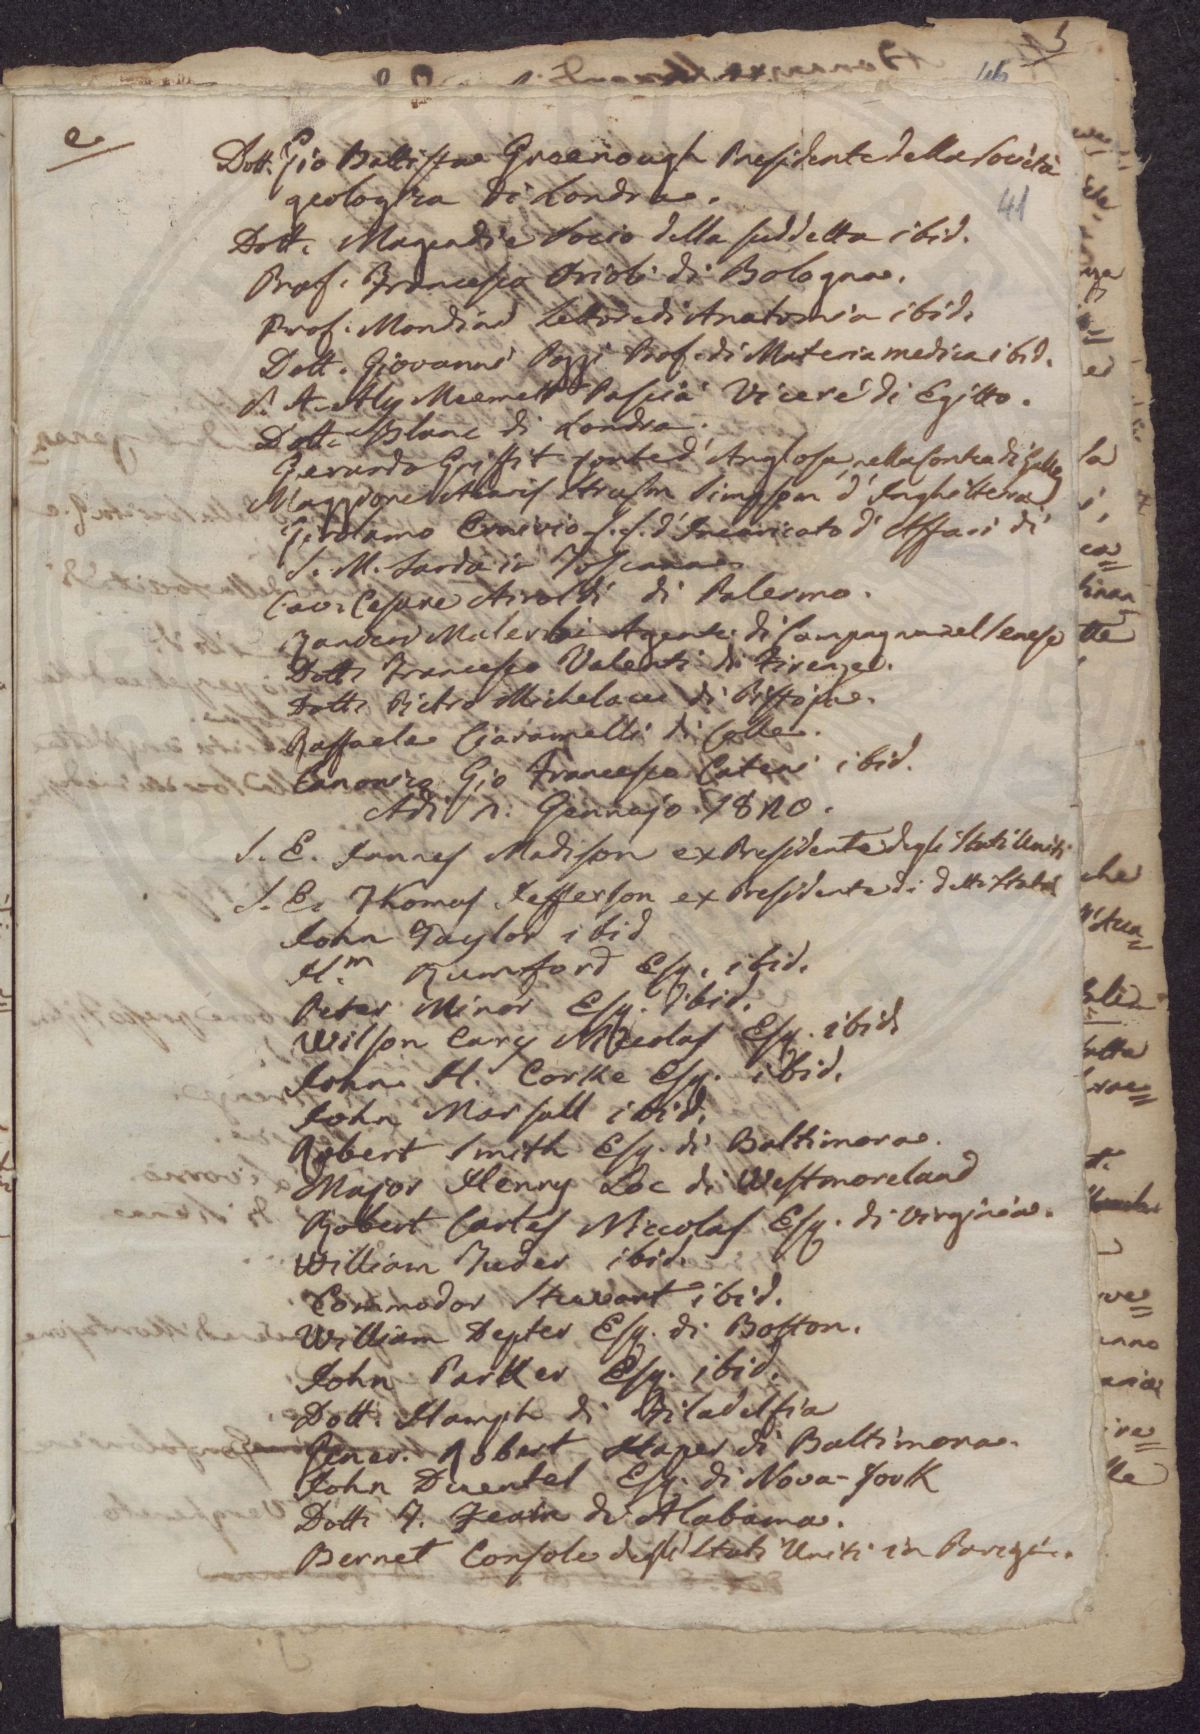 e.
5
46
41
Dott. Gio Battista Greenough Presidente della Società
geologica di Londra.
Dott. Magendie Socio della suddetta ibid.
Prof. Francesco Orioli di Bologna.
Prof. Mondini Lettore di Anatomia ibid.
Dott. Giovanni Pozzi Prof. di Materia medica ibid.
S. A. Aly Meemett Pascià Vicerè di Egitto.
Dott. Blanc di Londra.
Gerardo Griffit d'Anglosa nella Contea di Galles
Simpson d'Inghilterra
Girolamo S. S. d'Incaricato d'Affari di
S. M. Sarda in Toscana
Cav. Cesare Airoldi di Palermo.
Malerbi Agente di Campagna nel Senese
Dott. Francesco Valenti di Firenze.
Dott. Pietro Michelacci di Pistoja.
Raffaele Ciaramelli di Colle.
Canonico Gio Francesco Cateni ibid.
Adi 2. Gennajo 1820.
S. E. James Madison ex Presidente degli Stati Uniti
S. E. Thomas Jefferson ex Presidente di detti Stati
John Taylor ibid
H.m Rumford Esq. ibid.
Peter Minor Esq. ibid.
Wilson Cary Niccolas Esq. ibid.
John H. Corke Esq. ibid.
John Marsall ibid.
Robert Smith Esq. di Baltimora.
Major Henry Loc di Westmoreland
Robert Cartes Niccolas Esq. di Virginia.
William Tuder ibid.
Commodor Stuvart ibid.
William Depter Esq. di Boston.
John Parker Esq. ibid.
Dott. Hamph di Filadelfia
Gener. Robert Haper di Baltimora.
John Duentel Esq. di Nova-Jork
Dott. di Alabama.
Bernet Console degli Stati Uniti in Parigi.